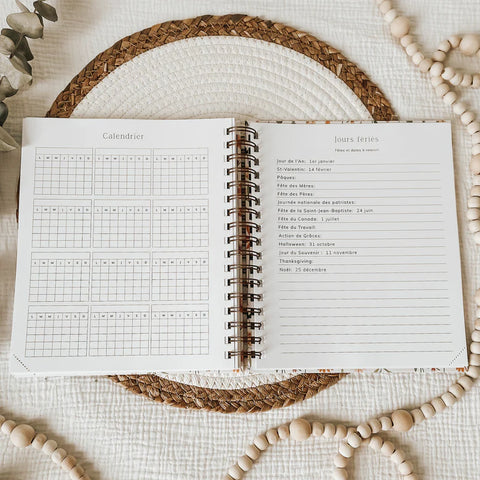 Calendrier
L M M J V S D L M M J V S D L M M J V S D
L M M J V S D L M M J V S D L M M J V S D
L M M J V S D L M M J V S D L M M J V S D
L M M J V S D L M M J V S D L M M J V S D
Jours fériés
Fêtes et dates à retenir
Jour de l'An: 1er janvier
St-Valentin: 14 février
Pâques:
Fête des Mères:
Fête des Pères:
Journée nationale des patriotes:
Fête de la Saint-Jean-Baptiste: 24 juin
Fête du Canada: 1 juillet
Fête du Travail:
Action de Grâces:
Halloween: 31 octobre
Jour du Souvenir : 11 novembre
Thanksgiving:
Noël: 25 décembre